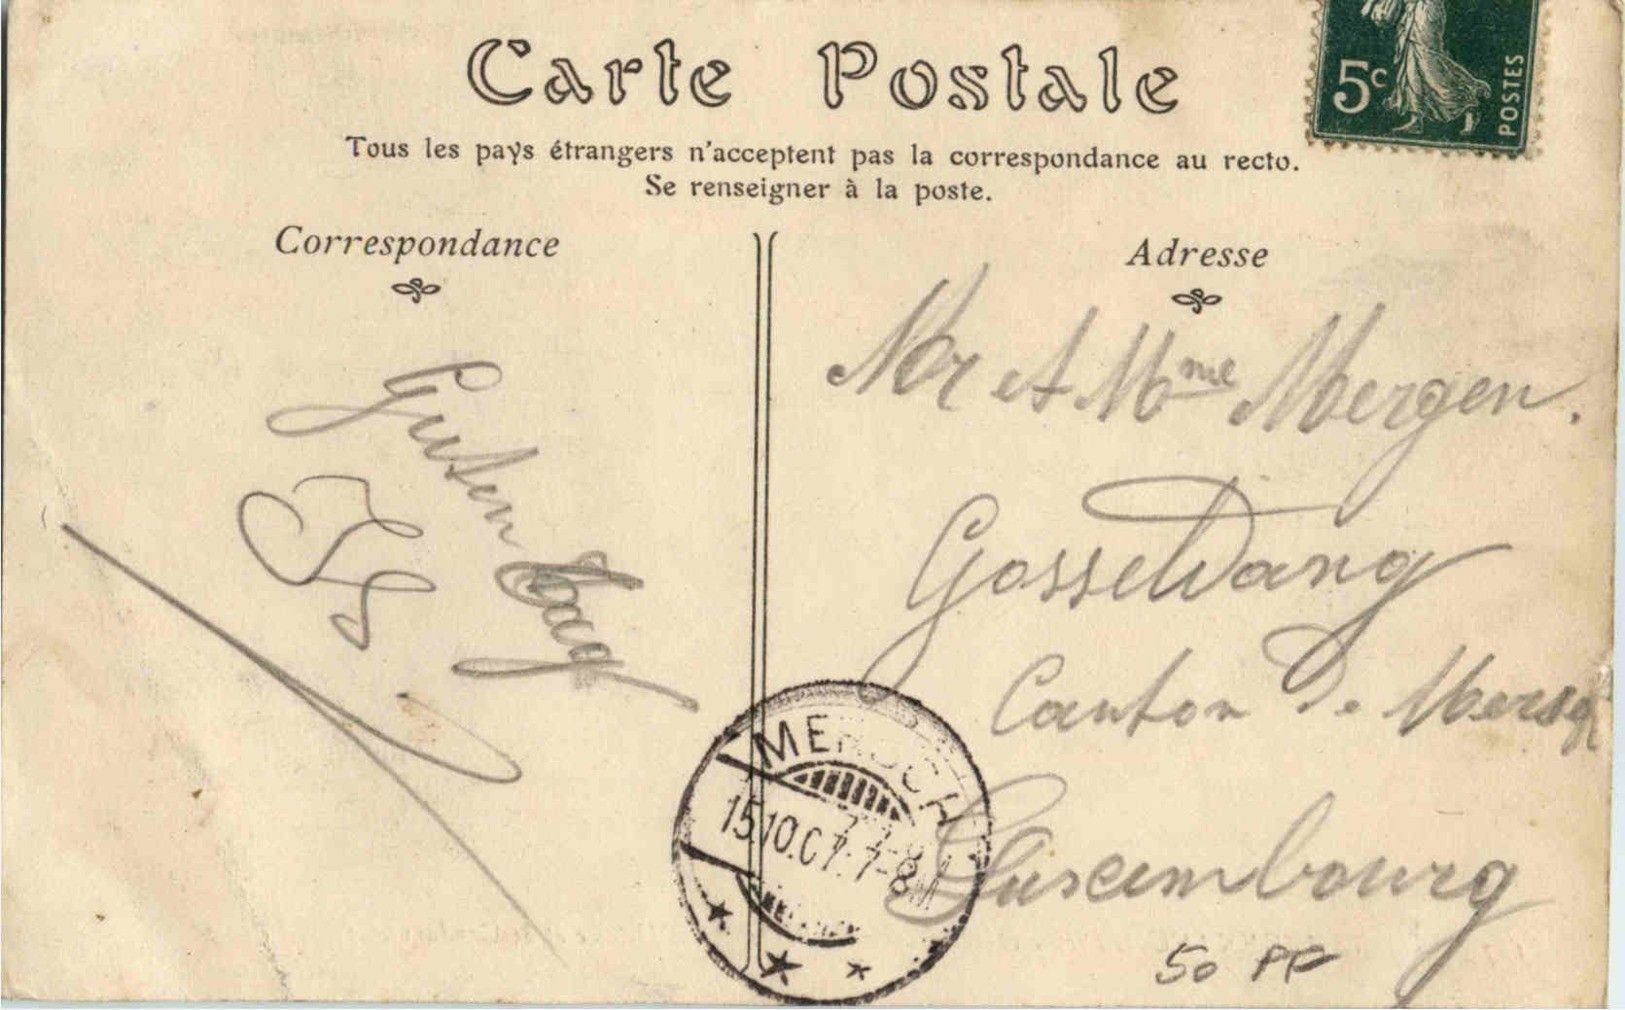 Carte Postale
5c
POSTES
Tous les pays étrangers n'acceptent pas la correspondance au recto.
Se renseigner à la poste.
Correspondance
Guten
Tag
Adresse
Mr et Mme Mergen.
Gosseldang
Canton de Mersch
Luxembourg
MERSCH
15.10.07.7-8
50 PF